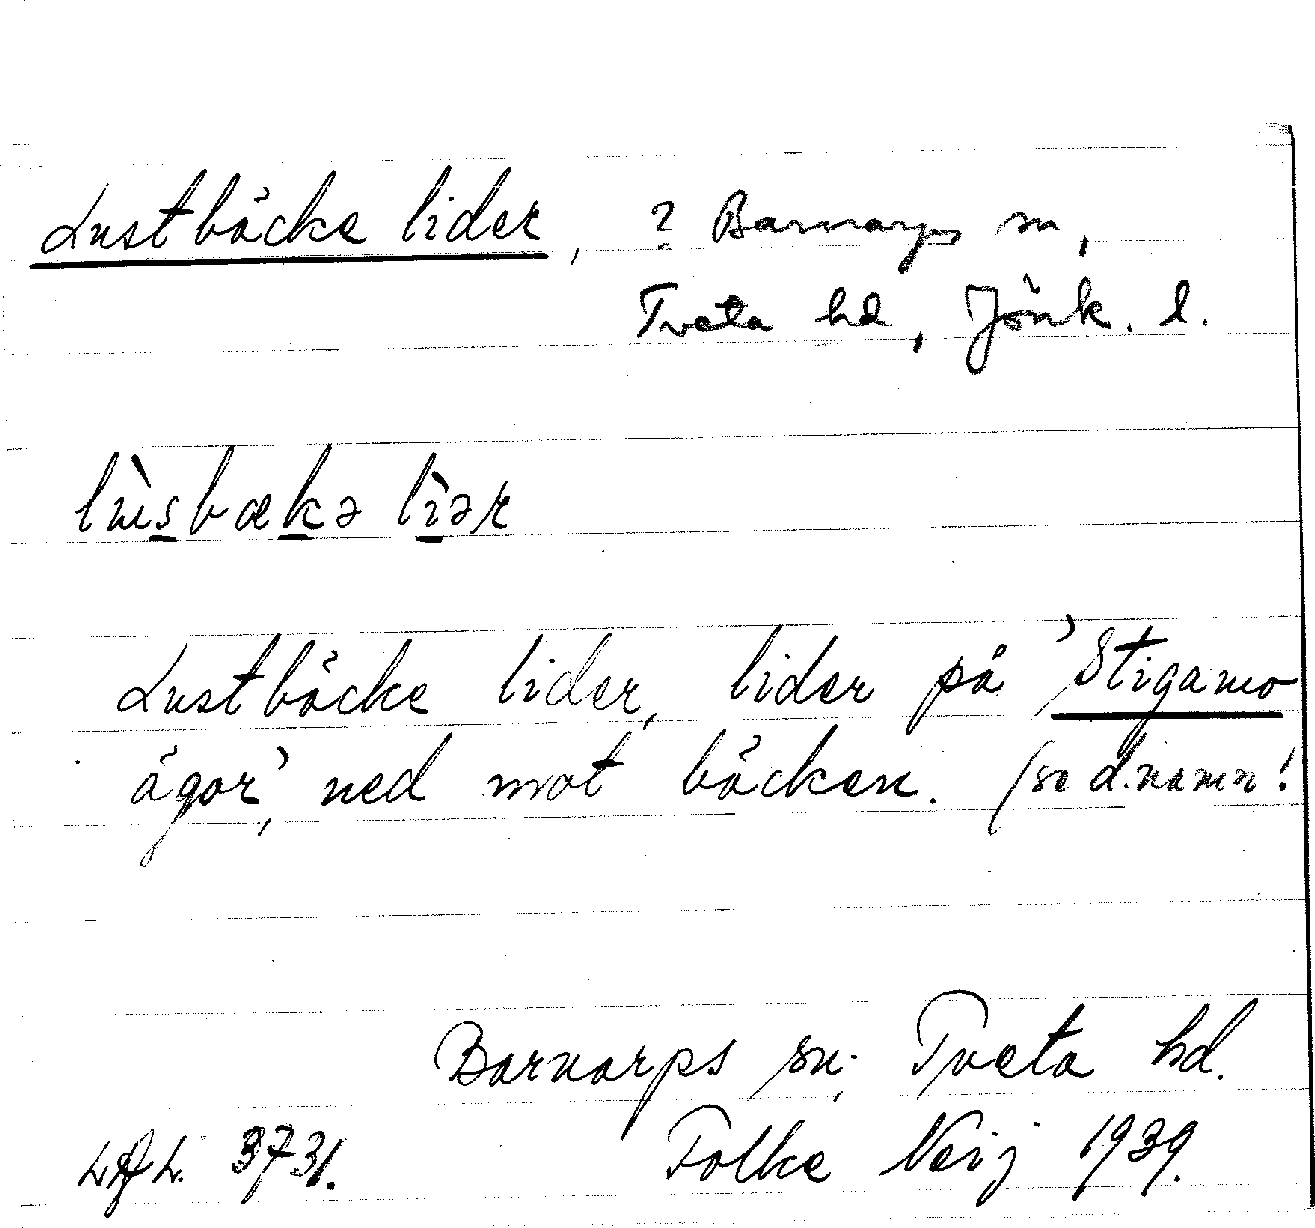 Lustbäcke lider, ? Barnarps sn,
Tveta hd, Jönk. l.
lùsbækə lìər
Lustbäcke lider, lider på 'Stigamo
ägor', ned mot bäcken. (se d. namn!
Barnarps sn; Tveta hd.
3731. Folke Neij 1939.